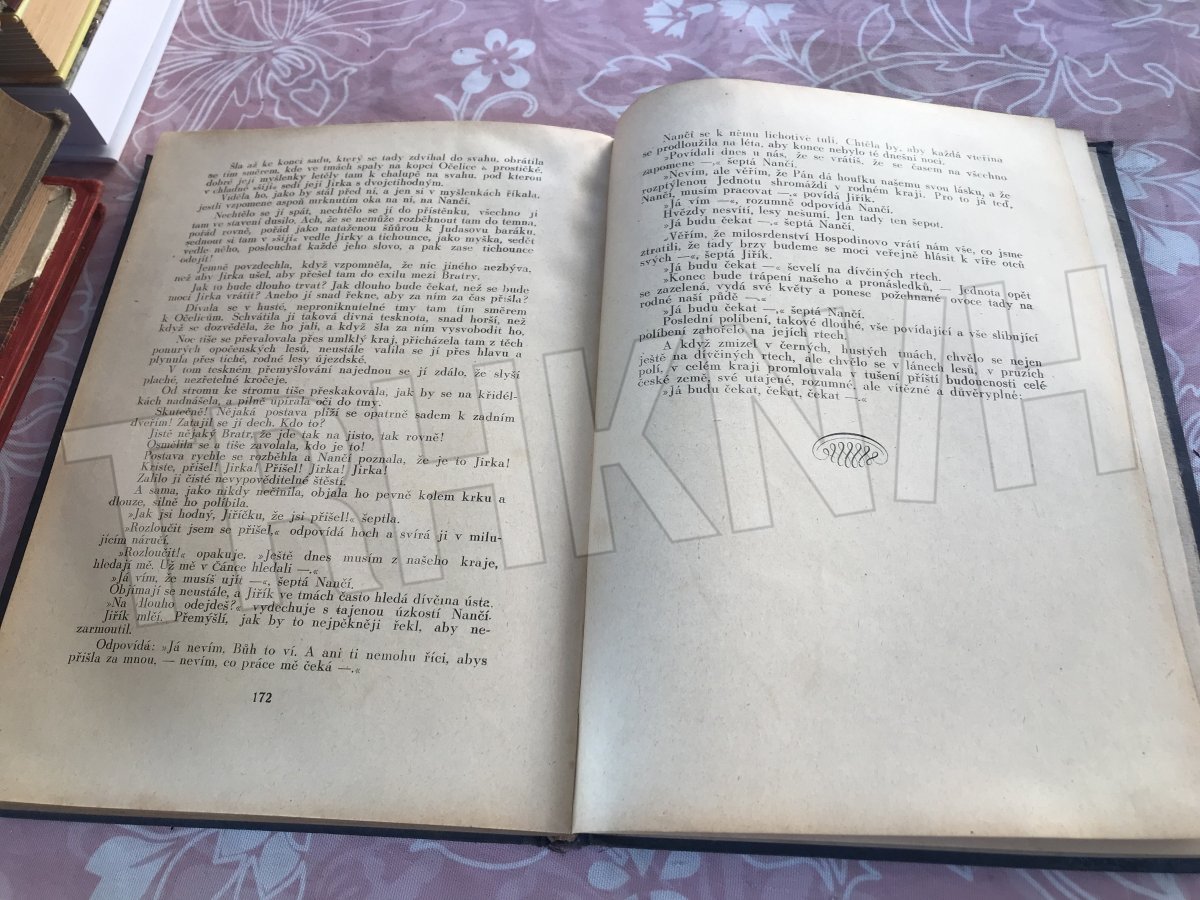 šla až ke konci sadu, který se tady zdvihal do svahu, obrátila
se tím směrem, kde ve tmách spaly na kopci Očelice s prostické,
dobré její myšlenky letěly tam k chalupě na svahu, pod kterou
v chladné »šiji« sedí její Jirka s dvojctihodným.
Viděla ho, jako by stál před ní, a jen si v myšlenkách říkala,
jestli vzpomene aspoň mrknutím oka na ni, na Nančí.
Nechtělo se jí spát, nechtělo se jí do přístěnku, všechno ji
tam ve stavení dusilo. Ach, že se nemůže rozběhnout tam do temna,
pořád rovně, pořád jako nataženou šňůrou k Judasovu baráku,
sednout si tam v »šiji« vedle Jirky a tichounce, jako myška, sedět
vedle něho, poslouchat každé jeho slovo, a pak zase tichounce
odejít!
Jemně povzdechla, když vzpomněla, že nic jiného nezbývá,
než aby Jirka ušel, aby přešel tam do exilu mezi Bratry.
Jak to bude dlouho trvat? Jak dlouho bude čekat, než se bude
moci Jirka vrátit? Anebo jí snad řekne, aby za ním za čas přišla?
Dívala se v husté, neproniknutelné tmy tam tím směrem
k Očelicům. Schvátila ji taková divná tesknota, snad horší, než
když se dozvěděla, že ho jali, a když šla za ním vysvobodit ho.
Noc tiše se převalovala přes umlklý kraj, přicházela tam z těch
ponurých opočenských lesů, neustále valila se jí přes hlavu a
plynula přes tiché, rodné lesy újezdské.
V tom teskném přemýšlování najednou se jí zdálo, že slyší
plaché, nezřetelné kročeje.
Od stromu ke stromu tiše přeskakovala, jak by se na křidél-
kách nadnášela, a pilně upírala oči do tmy.
Skutečně! Nějaká postava plíží se opatrně sadem k zadním
dveřím! Zatajil se jí dech. Kdo to?
Jistě nějaký Bratr, že jde tak na jisto, tak rovně!
Osmělila se a tiše zavolala, kdo je to!
Postava rychle se rozběhla a Nančí poznala, že je to Jirka!
Kriste, přišel! Jirka! Přišel! Jirka! Jirka!
Zalilo ji čisté nevypověditelné štěstí.
A sama, jako nikdy nečinila, objala ho pevně kolem krku a
dlouze, silně ho políbila.
»Jak jsi hodný, Jiříčku, že jsi přišel!« šeptla.
»Rozloučit jsem se přišel,« odpovídá hoch a svírá ji v milu-
jícím náručí.
»Rozloučit!« opakuje. »Ještě dnes musím z našeho kraje,
hledají mě. Už mě v Čánce hledali —.«
»Já vím, že musíš ujít —«, šeptá Nančí.
Objímají se neustále, a Jiřík ve tmách často hledá dívčina ústa.
»Na dlouho odejdeš?« vydechuje s tajenou úzkostí Nančí.
Jiřík mlčí. Přemýšlí, jak by to nejpěkněji řekl, aby ne-
zarmoutil.
Odpovídá: »Já nevím. Bůh to ví. A ani ti nemohu říci, abys
přišla za mnou, — nevím, co práce mě čeká —.«
172
Nančí se k němu lichotivě tulí. Chtěla by, aby každá vteřina
se prodloužila na léta, aby konce nebylo té dnešní noci.
»Povídali dnes u nás, že se vrátíš, že se časem na všechno
zapomene —,« šeptá Nančí.
»Nevím, ale věřím, že Pán dá houfku našemu svou lásku, a že
rozptýlenou Jednotu shromáždí v rodném kraji. Pro to já teď,
Nančí, musím pracovat —.« povídá Jiřík.
»Já vím —«, rozumně odpovídá Nančí.
Hvězdy nesvítí, lesy nešumí. Jen tady ten šepot.
»Já budu čekat —«, šeptá Nančí.
»Věřím, že milosrdenství Hospodinovo vrátí nám vše, co jsme
ztratili, že tady brzy budeme se moci veřejně hlásit k víře otců
svých —«, šeptá Jiřík.
»Já budu čekat —« ševelí na dívčiných rtech.
»Konec bude trápení našeho a pronásledků, — Jednota opět
se zazelená, vydá své květy a ponese požehnané ovoce tady na
rodné naší půdě —.«
»Já budu čekat —«, šeptá Nančí.
Poslední políbení, takové dlouhé, vše povídající a vše slibující
políbení zahořelo na jejích rtech.
A když zmizel v černých, hustých tmách, chvělo se nejen
ještě na dívčiných rtech, ale chvělo se v lánech lesů, v pruzích
polí, v celém kraji promlouvala v tušení příští budoucnosti celé
české země, své utajené, rozumné, ale vítězné a důvěryplné:
»Já budu čekat, čekat, čekat —.«
TRHKNIH